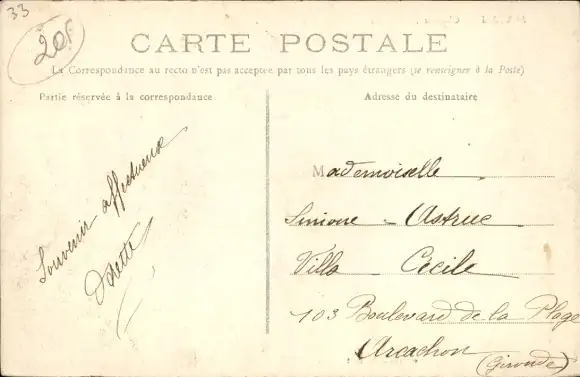 33
20F
CARTE POSTALE
La Correspondance au recto n'est pas acceptée par tous les pays étrangers (se renseigner à la Poste)
Partie réservée à la correspondance
Adresse du destinataire
Souvenir affectueux
Odette
Mademoiselle
Simone - Astruc
Villa Cécile
103 Boulevard de la Plage
Arcachon (Gironde)